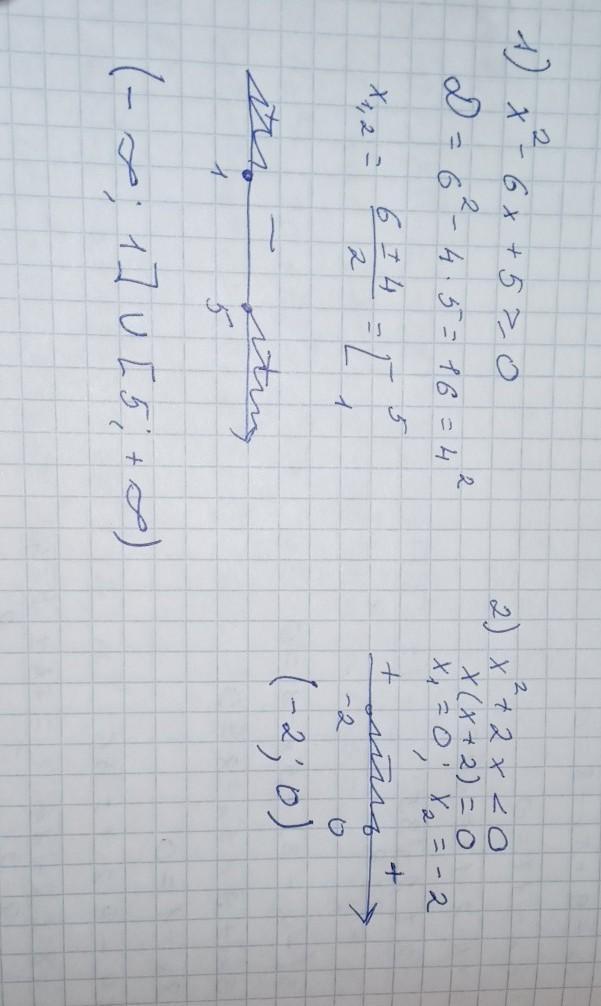 1) x² - 6x + 5 ≥ 0
D = 6² - 4 · 5 = 16 = 4²
x₁,₂ = (6 ± 4)/2 = [ 5 1
1 - 5
(-∞; 1] ∪ [5; +∞)
2) x² + 2x < 0
x(x + 2) = 0
x₁ = 0; x₂ = -2
+ +
-2 0
(-2; 0)